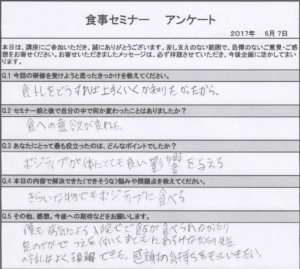 食事セミナー　アンケート
2017年　6月 7日
本日は、講座にご参加いただき、誠にありがとうございます。差し支えのない範囲で、忌憚のないご意見・ご感想をお寄せください。お寄せいただきましたメッセージは、必ず拝読させていただき、今後企画に活かしてまいります。
Q.1 今回の研修を受けようと思ったきっかけを教えてください。
食トレをどうすれば上手くいくか知りたかったから。
Q.2 セミナー前と後で自分の中で何か変わったことはありましたか？
食への意欲が変わった。
Q.3 あなたにとって最も役立ったのは、どんなポイントでしたか？
ポジティブが体にとても良い影響を与える
Q.4 本日の内容で解決できた(できそうな)悩みや問題点を教えてください。
きらいな物でもポジティブに食べる
Q.5 その他、感想、今後への期待などをお願いします。
僕も病気により入院でご飯が食べられなかったり
の話はよく理解できた。感謝の気持ちをもっていきたい。